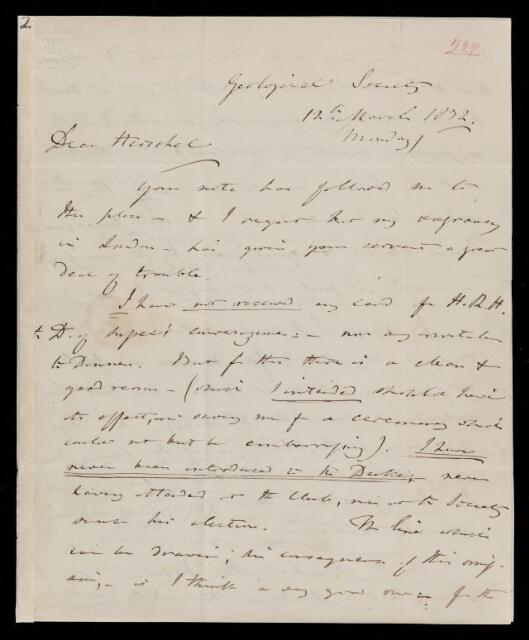 2.
222
Geological Society
12th March 1832.
Monday
Dear Herschel
Your note has followed me to
this place - & I regret that my vagrancy
in London - has given your servant a great
deal of trouble.
I have not received any card for H.R.H.
the D. of Sussex's conversazione - nor any invitation
to Dinner. But for this there is a clean &
good reason - (which I intended should have
its effect, in saving me from a ceremony which
could not but be embarrassing). I have
never been introduced to the Duke, never
having attended at the Club, nor at the Society
since his election. The line which
can be drawn, in consequence of this
is I think a very good one for the